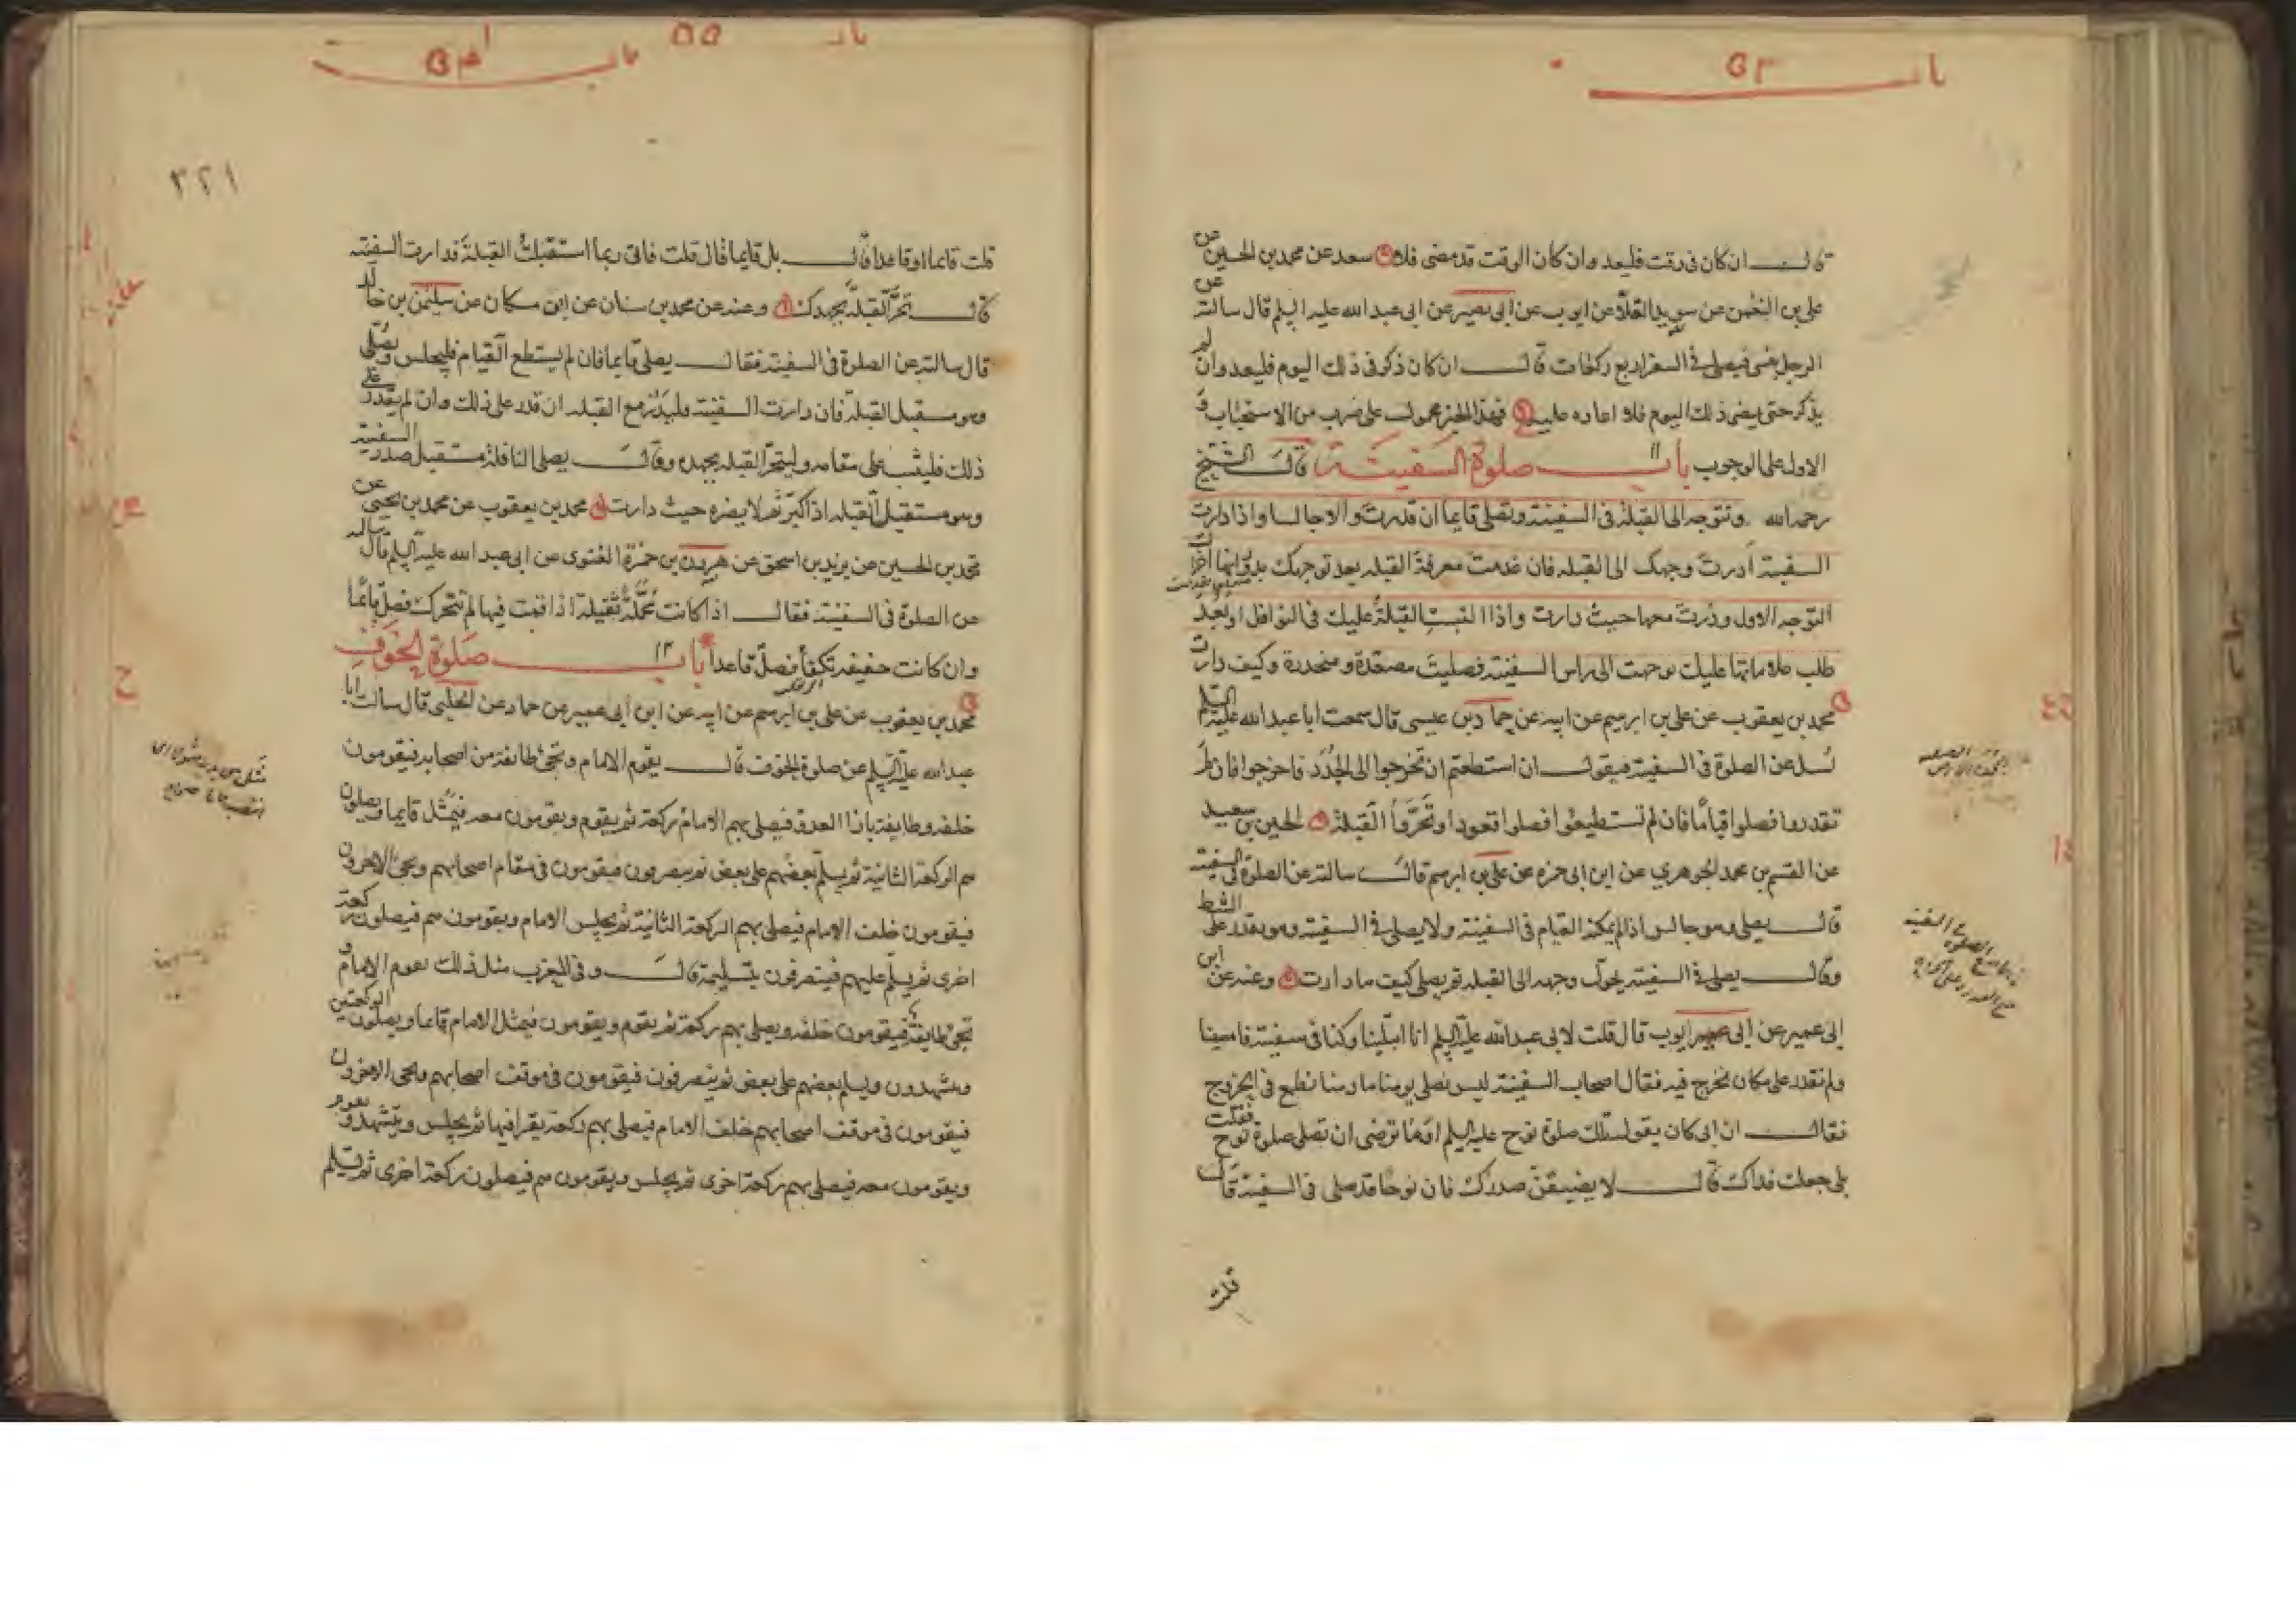 باب ٥٣
قال ان كان فى وقت فليعد وان كان الوقت قد مضى فلا سعد عن محمد بن الحسين عن
على بن النعمن عن سويد القلا عن ايوب عن ابى بصير عن ابى عبد الله عليه السلم قال سالته عن
الرجل ينسى فيصلى فى السفر اربع ركعات قال ان كان ذكر فى ذلك اليوم فليعد وان لم
يذكر حتى يمضى ذلك اليوم فلا اعاده عليه فهذا الخبر محمول على ضرب من الاستحباب و
الاول على الوجوب باب صلوة السفينة قال الشيخ
رحمه الله وتتوجه الى القبلة فى السفينة وتصلى قايما ان قدرت والا جالسا واذا دارت
السفينة ادرت وجهك الى القبله فان عدمت معرفة القبله بعد توجهك بدورانها اجزاك
التوجه الاول ودرت معها حيث دارت واذا التبست القبلة عليك فى النوافل او بعد
طلب علاماتها عليك توجهت الى راس السفينة فصليت مصعدة ومنحدرة وكيف دارت
محمد بن يعقوب عن على بن ابرهيم عن ابيه عن حماد بن عيسى قال سمعت ابا عبد الله عليه السلم
يسل عن الصلوة فى السفينة فيقول ان استطعتم ان تخرجوا الى الجدد فاخرجوا فان لم
تقدروا فصلوا قياما فان لم تستطيعوا فصلوا قعودا وتحروا القبلة الحسين بن سعيد
عن القسم بن محمد الجوهري عن ابن ابى حمزه عن على بن ابرهيم قال سالته عن الصلوة فى السفينة
قال يصلى وهو جالس اذا لم يمكنه القيام فى السفينة ولا يصلى فى السفينة وهو يقدر على الشط
وقال يصلى فى السفينة يحول وجهه الى القبله ثم يصلى كيف ما دارت وعنه عن ابن
ابى عمير عن ابى ايوب قال قلت لابى عبد الله عليه السلم انا ابتلينا وكنا فى سفينة فامسينا
ولم نقدر على مكان نخرج فيه فقال اصحاب السفينة ليس نصلى يومنا ما دمنا نطمع فى الخروج
فقال ان ابى كان يقول تلك صلوة نوح عليه السلم اوما ترضى ان تصلى صلوة نوح فقلت
بلى جعلت فداك قال لا يضيقن صدرك فان نوحا قد صلى فى السفينة قال
قلت
باب ٥٥
باب ٥٤
٣٢١
قلت قايما او قاعدا قال بل قايما قال قلت فانى ربما استقبلت القبلة فدارت السفينه
قال تحر القبلة بجهدك وعنه عن محمد بن سنان عن ابن مسكان عن سليمن بن خالد
قال سالته عن الصلوة فى السفينة فقال يصلى قايما فان لم يستطع القيام فليجلس ويصلى
وهو مستقبل القبلة فان دارت السفينة فليدر مع القبله ان قدر على ذلك وان لم يقدر على
ذلك فليثبت على مقامه وليتحر القبله بجهده وقال يصلى النافلة مستقبل صدر السفينة
وهو مستقبل القبله اذا كبر ثم لا يضره حيث دارت محمد بن يعقوب عن محمد بن يحيى عن
محمد بن الحسين عن يزيد بن اسحق عن هرون بن حمزة الغنوى عن ابى عبد الله عليه السلم قال سالته
عن الصلوة فى السفينة فقال اذا كانت محملة ثقيلة اذا قمت فيها لم تتحرك فصل قايما
وان كانت خفيفه تكفأ فصل قاعدا باب صلوة الخوف
محمد بن يعقوب عن على بن ابرهيم عن ابيه عن ابن ابى عمير عن حماد عن الحلبى قال سالت ابا
عبد الله عليه السلم عن صلوة الخوف قال يقوم الامام وتجئ طائفة من اصحابه فيقومون
خلفه وطايفة بازا العدو فيصلى بهم الامام ركعة ثم يقوم ويقومون معه فيمثل قايما ويصلون
هم الركعة الثانية ثم يسلم بعضهم على بعض ثم ينصرفون فيقومون فى مقام اصحابهم ويجئ الاخرون
فيقومون خلف الامام فيصلى بهم الركعة الثانية ثم يجلس الامام ويقومون هم فيصلون ركعة
اخرى ثم يسلم عليهم فينصرفون بتسليمة قال وفى المغرب مثل ذلك يقوم الامام و
تجئ طايفة فيقومون خلفه ويصلى بهم ركعة ثم يقوم ويقومون فيمثل الامام قايما ويصلون الركعتين
ويتشهدون ويسلم بعضهم على بعض ثم ينصرفون فيقومون فى موقف اصحابهم ويجى الاخرون
فيقومون فى موقف اصحابهم خلف الامام فيصلى بهم ركعة يقرا فيها ثم يجلس ويتشهد ويقوم
ويقومون معه فيصلى بهم ركعة اخرى ثم يجلس ويقومون هم فيصلون ركعة اخرى ثم يسلم